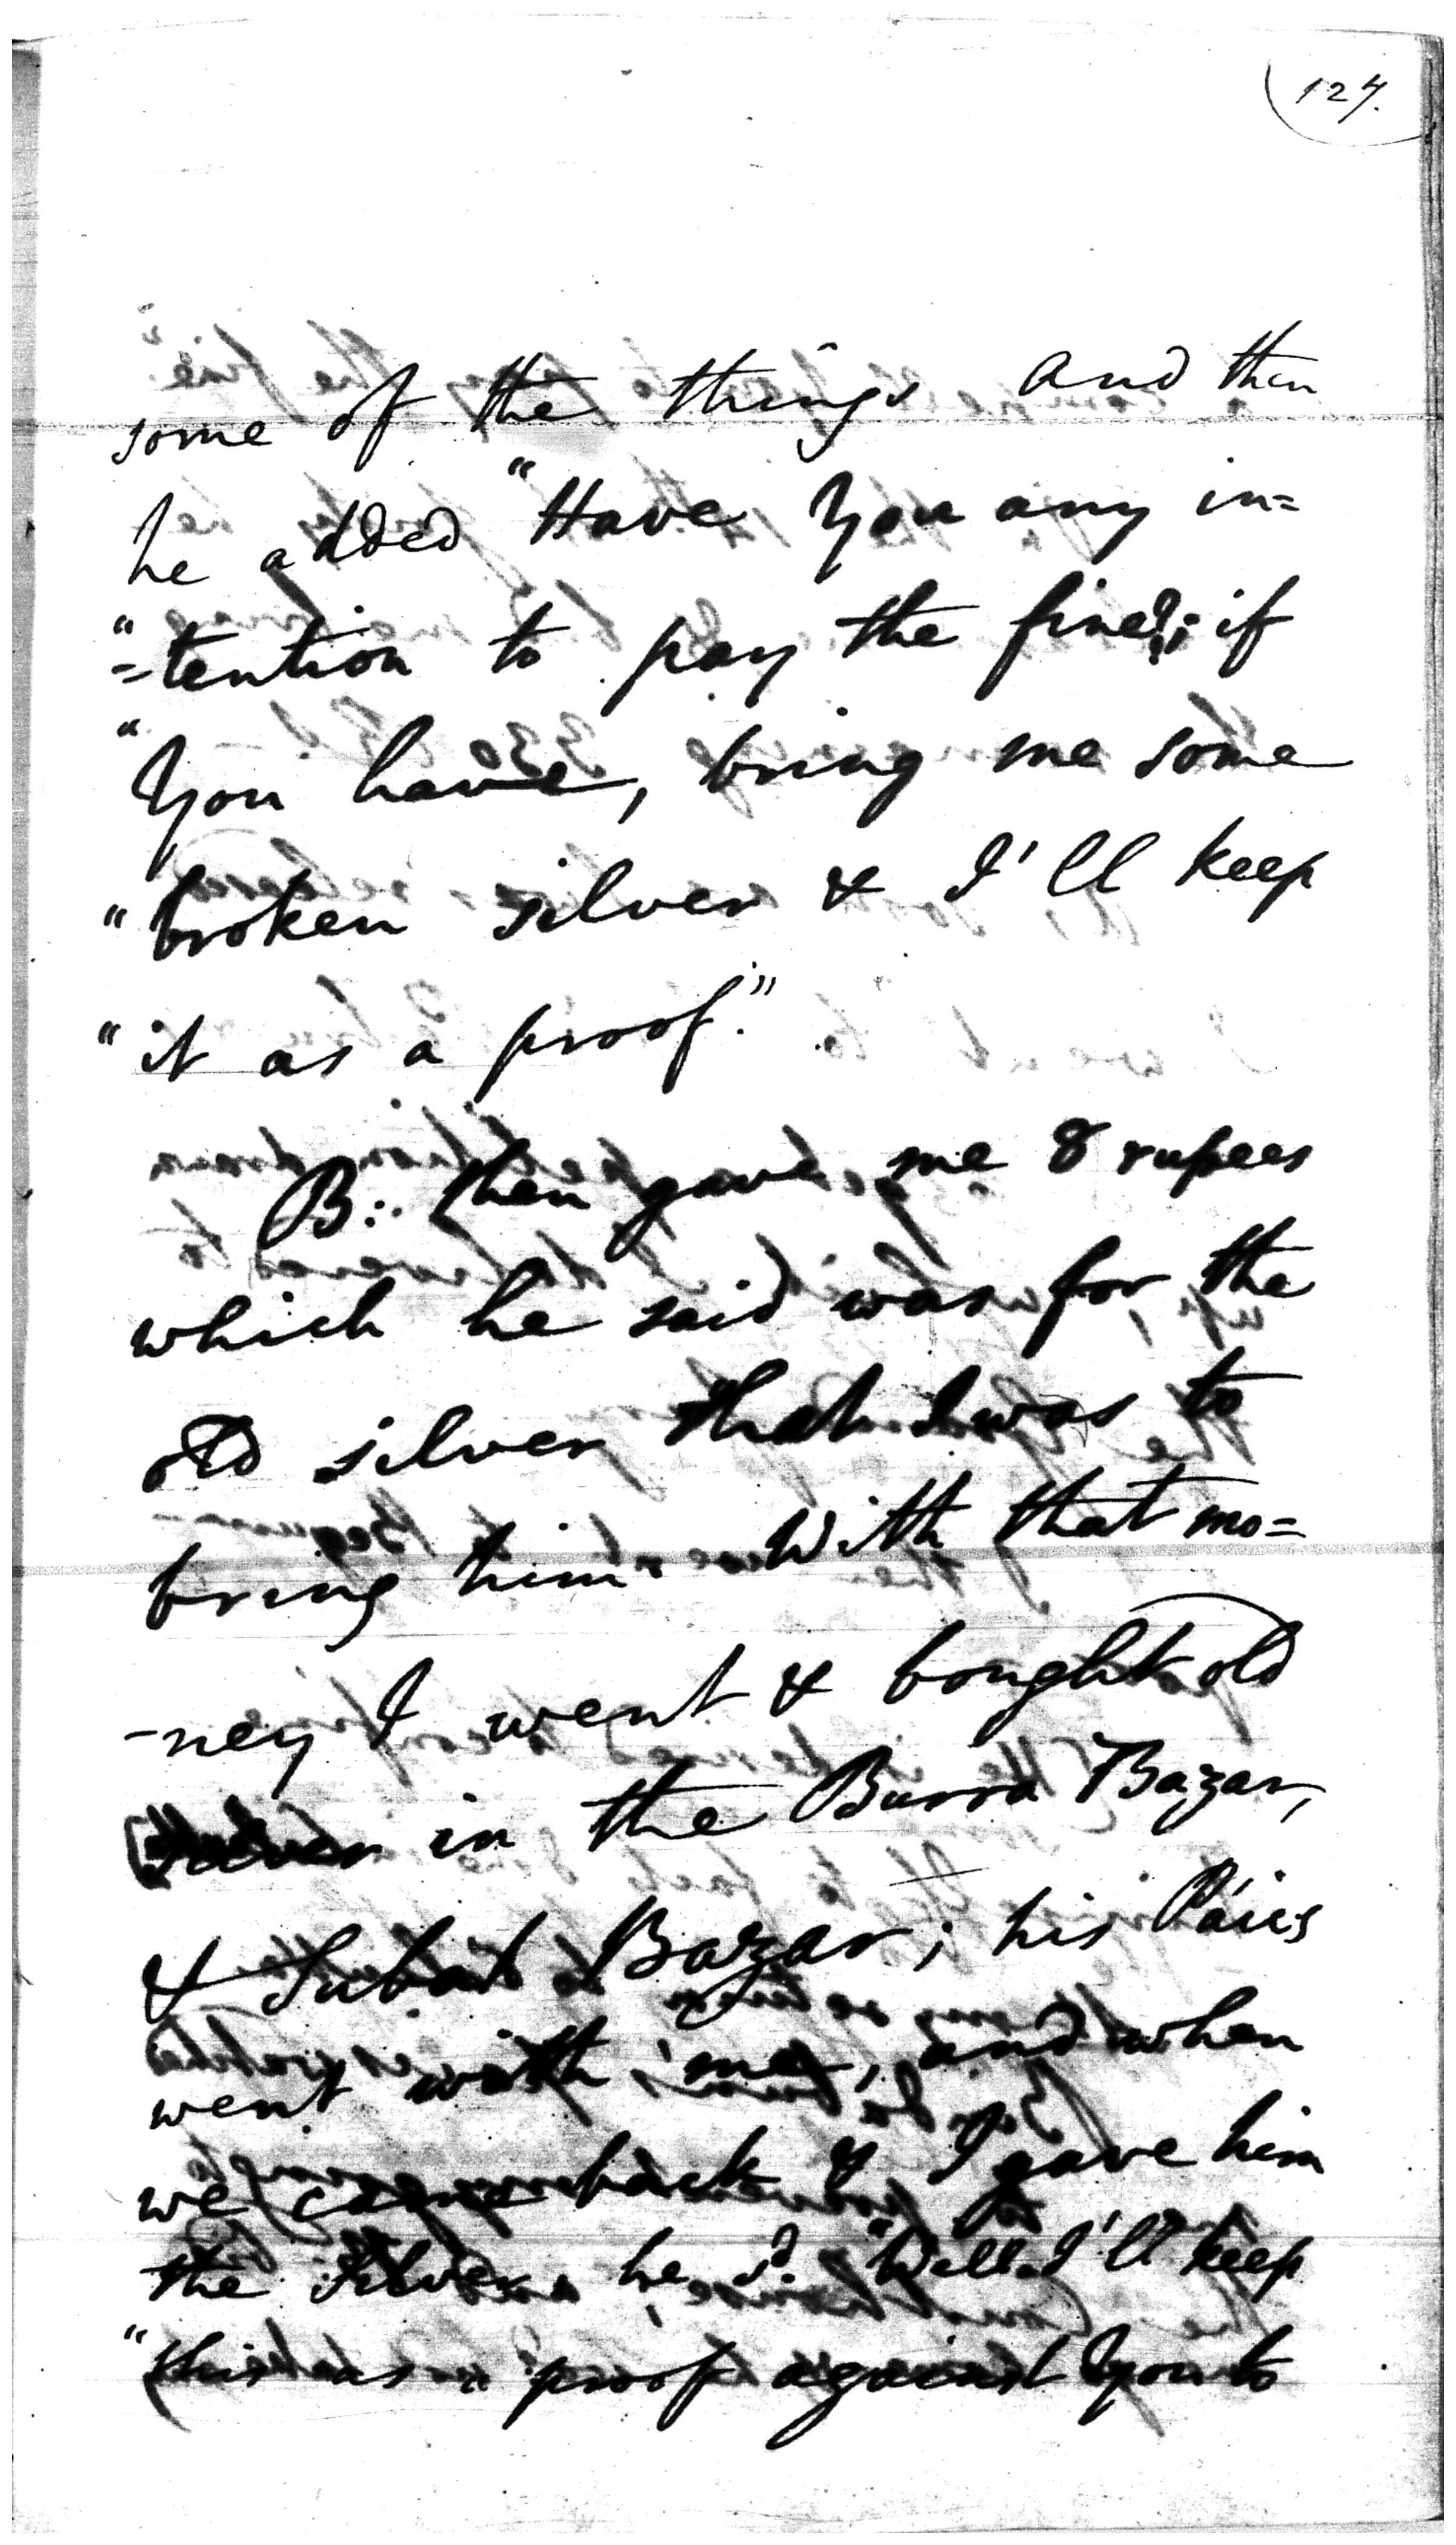 127.
some of the things and then
he added "Have You any in=
"=tention to pay the fine?; if
"You have, bring me some
"broken silver & I'll keep
"it as a proof."
B:. then gave me 8 rupees
which he said was for the
old silver that I was to
bring him. With that mo=
-ney I went & bought old
silver in the Burra Bazar,
& Bazar; his
went with me, and when
we came back & I gave him
the silver he sd. "Well I'll keep
"this as a proof against You to